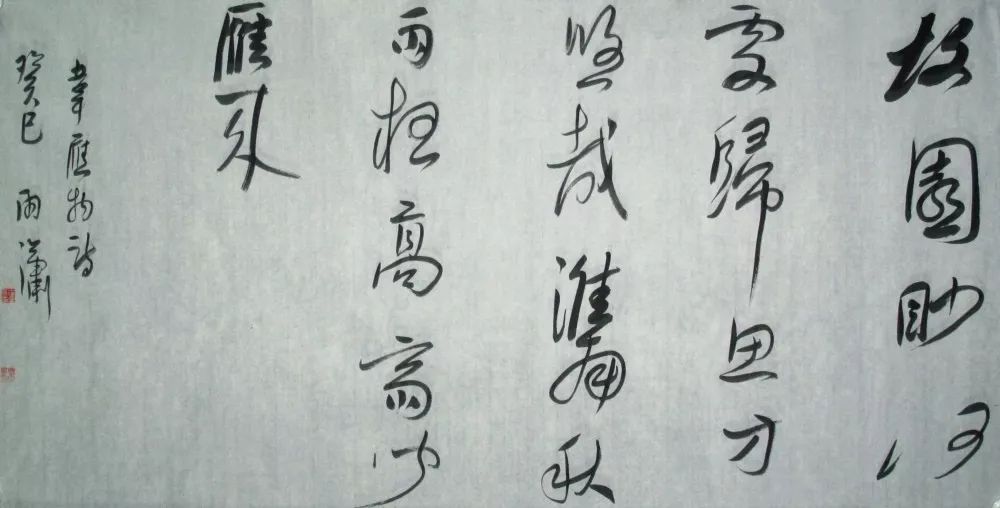 故園眇何
處歸思方
悠哉淮南秋
雨高齋聞
雁來
韋應物詩
癸巳 雨瀟